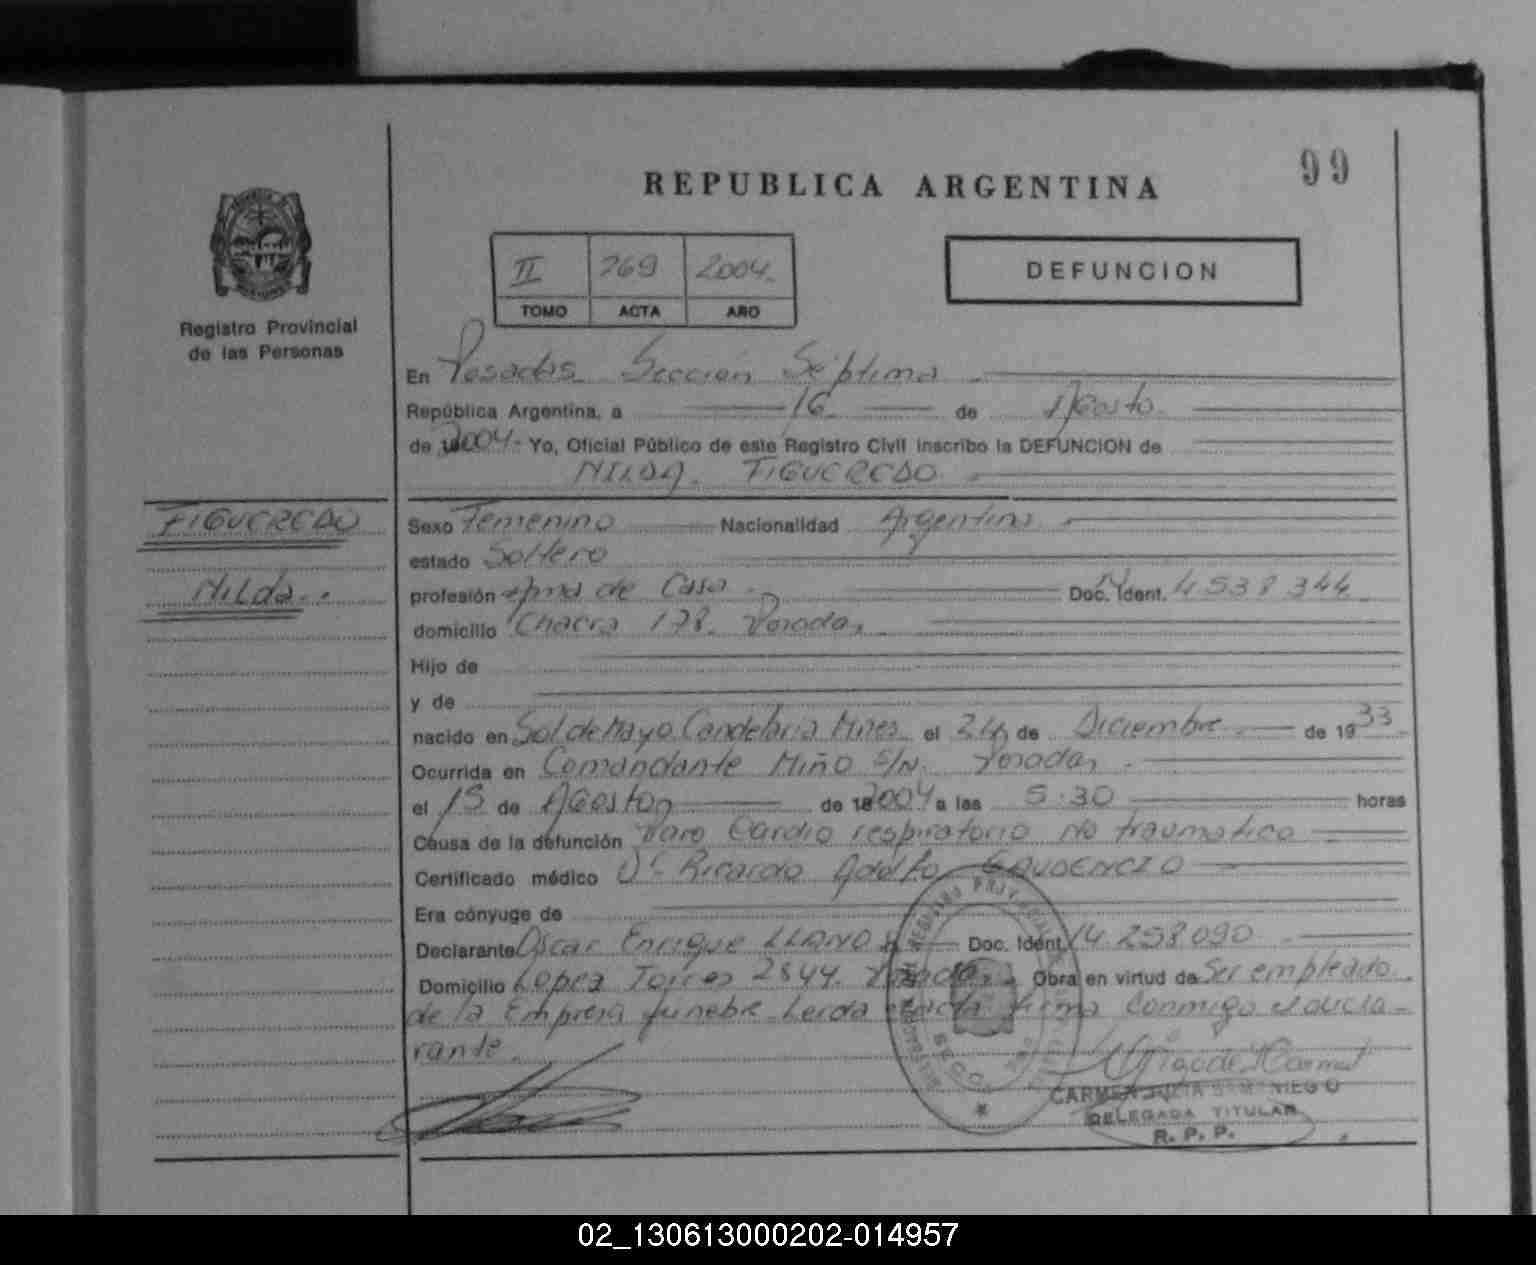 99
REPUBLICA ARGENTINA
II 769 2004.
TOMO ACTA AÑO
DEFUNCION
Registro Provincial
de las Personas
En Posadas Sección Séptima
República Argentina, a 16 de Agosto
de 2004 - Yo, Oficial Público de este Registro Civil inscribo la DEFUNCION de
NILDA FIGUEREDO
FIGUEREDO
Nilda
Sexo Femenino Nacionalidad Argentina
estado Soltero
profesión Ama de Casa Doc. Ident. 4538344
domicilio Chacra 178. Posadas
Hijo de
y de
nacido en Sol de Mayo Candelaria Mnes el 24 de Diciembre de 1933
Ocurrida en Comandante Miño S/N. Posadas
el 15 de Agosto de 2004 a las 5:30 horas
Causa de la defunción Paro Cardio respiratorio No traumatico
Certificado médico Dr Ricardo Adolfo GAUDENCIO
Era cónyuge de
Declarante Oscar Enrique LLANO Doc. Ident. 14 258 090
Domicilio Lopez Torres 2844. Posadas. Obra en virtud de Ser empleado
de la Empresa funebre Leida el acta firma Conmigo el decla-
rante.
CARMEN SAMANIEGO
DELEGADA TITULAR
R. P. P.
02_130613000202-014957